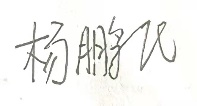 杨鹏飞